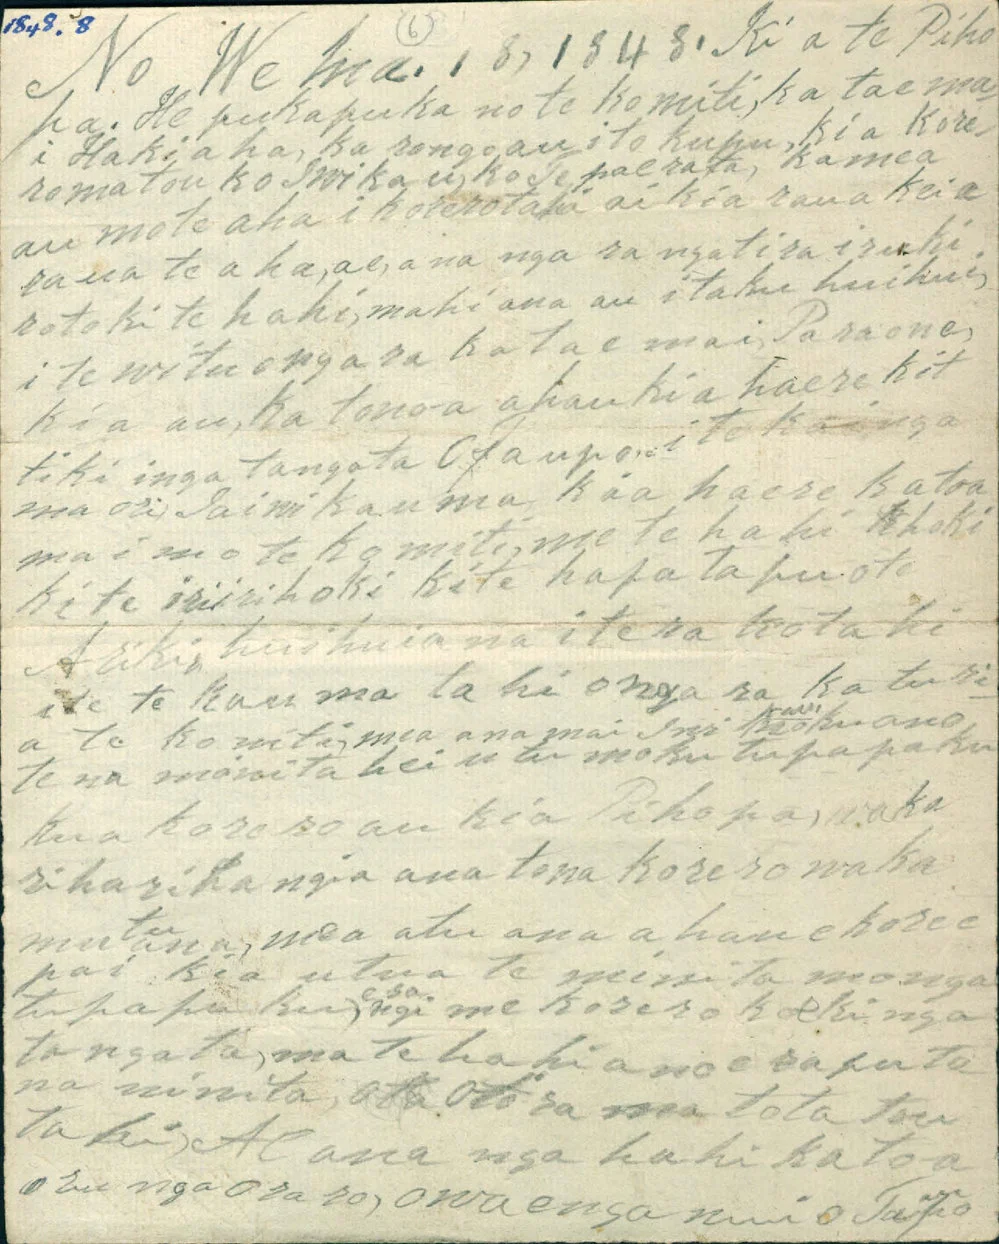 1848. 8
(6)
No Wema. 18, 1848. Ki a te Piho
pa. He pukapuka no te komiti, ka tae mai
i Hakiaha, ka rongo au i to kupu, kia kore
ro matou ko Iwikau, ko Te paerata, ka mea
au mo te aha i korerotahi ai kia raua kei a
raua te aha, ae, ana nga rangatira i ruki
roto ki te hahi, mahi ana au i taku huihui,
i te witu o nga ra ka tae mai, Paraone,
kia au, ka tonoa ahau kia haere kit
tiki i nga tangata O Taupo, i te kainga
maori, Iaiwikau ma, kia haere katoa
mai mo te komiti, me te hahi hoki
ki te iriiri hoki ki te hapa tapu o te
Ariki, huihuia na i te ra kotahi
i te te kau ma tahi o nga ra ka tu ri
a te komiti, mea ana mai Iwikau ki ano
te na minita hei utu moku tupapaku
kua korero au kia Pihopa, waka
riharihangia ana tona korero waka
mutu ana, mea atu ana ahau e kore e
pai kia utua te minita mo nga
tupapaku, erangi me korero koe ki nga
tangata, ma te hahi anoe rapu to
na minita, ota ma tota tou
tahi, Ae ana nga hahi katoa
o runga o raro, o waenganui o Taupo